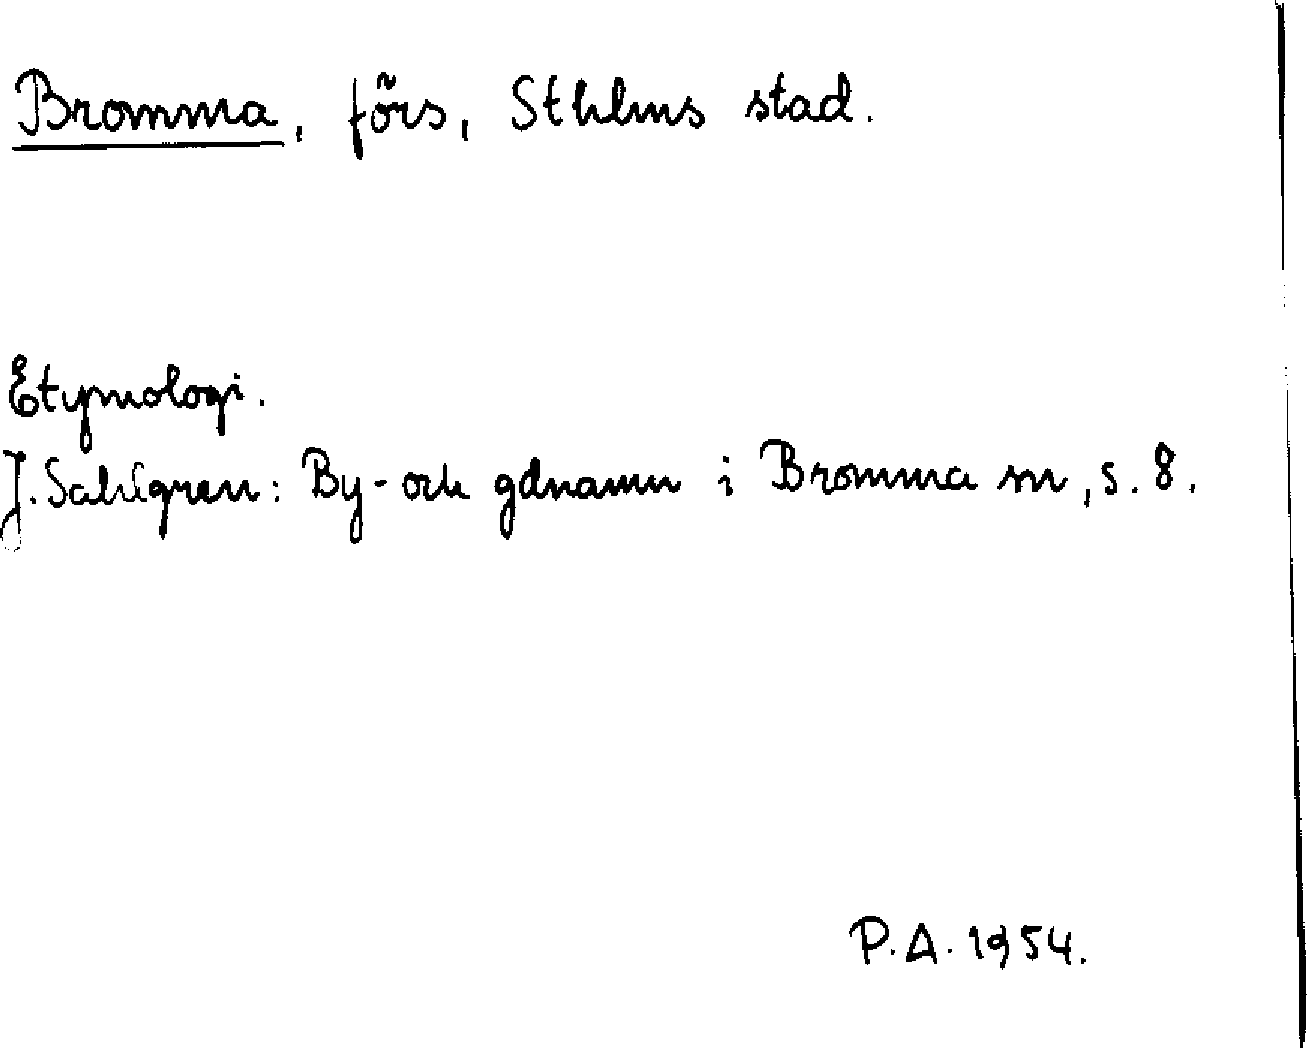 Bromma, förs, Sthlms stad.
Etymologi.
J. Sahlgren: By- och gdnamn i Bromma sn, s. 8.
P.A. 1954.